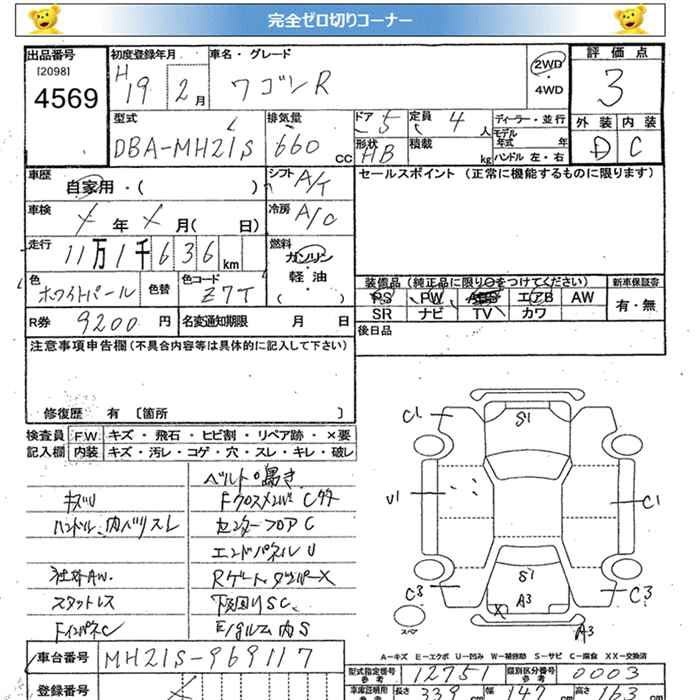 完全ゼロ切りコーナー
出品番号 初度登録年月 車名・グレード 2WD 評価点
[2098] H
4569 19 2月 ワゴンR ・ 4WD 3
型式 排気量 ドア 5 定員 4人 ディーラー・並行 外装 内装
DBA-MH21S 660cc 形状 HB 積載 kg モデル年式 年 D C
ハンドル 左・右
車歴 自家用・( ) シフト A/T セールスポイント (正常に機能するものに限ります)
車検 メ年メ月( 日) 冷房 A/C
走行 11万1千636km 燃料 ガソリン
軽・油
( )
色 ホワイトパール 色替 色コード Z7T
装備品 (純正品に限り○をつけてください) 新車保証書
PS PW エアB AW 有・無
SR ナビ TV カワ
R券 9200円 名変通知期限 月 日 後日品
注意事項申告欄(不具合内容等は具体的に記入して下さい)
修復歴 有 〔箇所 〕
検査員 F.W キズ・飛石・ヒビ割・リペア跡・×要
記入欄 内装 キズ・汚レ・コゲ・穴・スレ・キレ・破レ
キズU
ハンドル、内ベリスレ
社外AW.
スタットレス
FインパネC
ベルト鳴き
FクロスメンバC
センターフロアC
エンドパネルU
Rゲートダンパー×
下回りSC
E/gルーム内S
C1 S1
U1 C1
C3 S1 C3
A3
X A3
スペア
A－キズ E－エクボ U－凹み W－補修跡 S－サビ C－腐食 XX－交換済
車台番号 MH21S-969117
型式指定番号 参考 12751 類別区分番号 参考 0003
登録番号 メ
車庫証明用 参考 長さ 339cm 幅 147cm 高さ 163cm